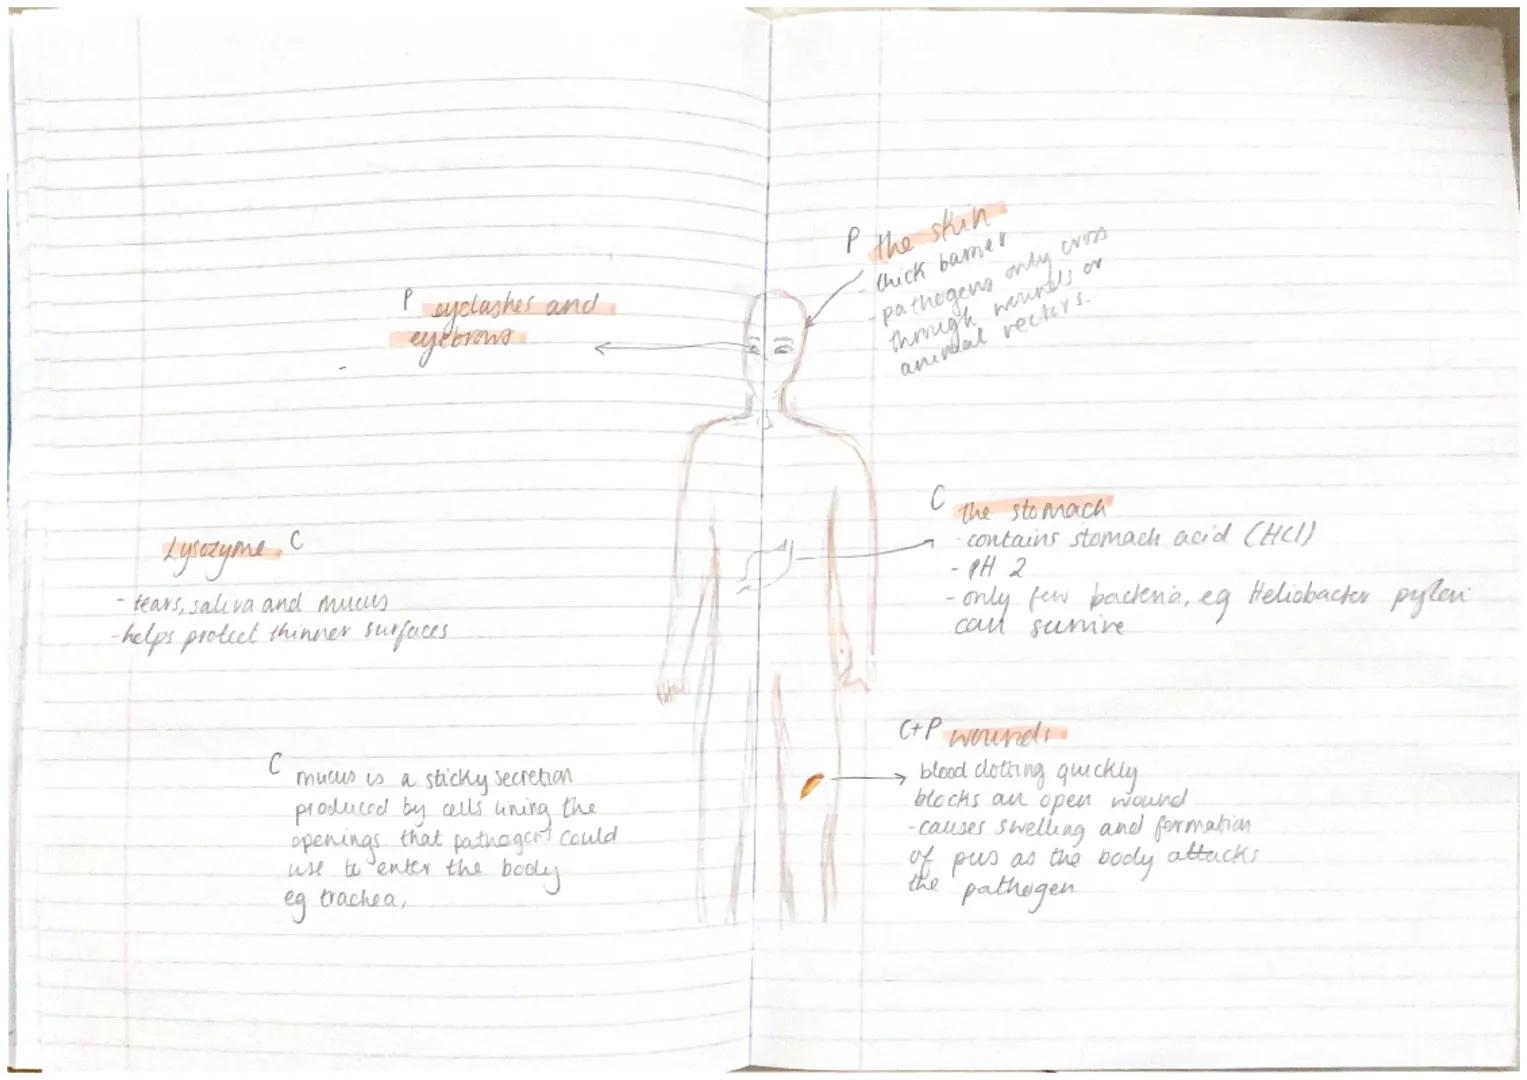 P the skin
- thick barrier
- pathogens only cross
through wounds or
animal vectors.
P eyelashes and
eyebrows
C the stomach
- contains stomach acid (HCl)
- PH 2
- only few bacteria, eg Heliobacter pylori
can survive
Lysozyme C
- tears, saliva and mucus
- helps protect thinner surfaces
C+P wounds
blood clotting quickly
blocks an open wound
- causes swelling and formation
of pus as the body attacks
the pathogen
C mucus is a sticky secretion
produced by cells lining the
openings that pathogens could
use to enter the body
eg trachea,